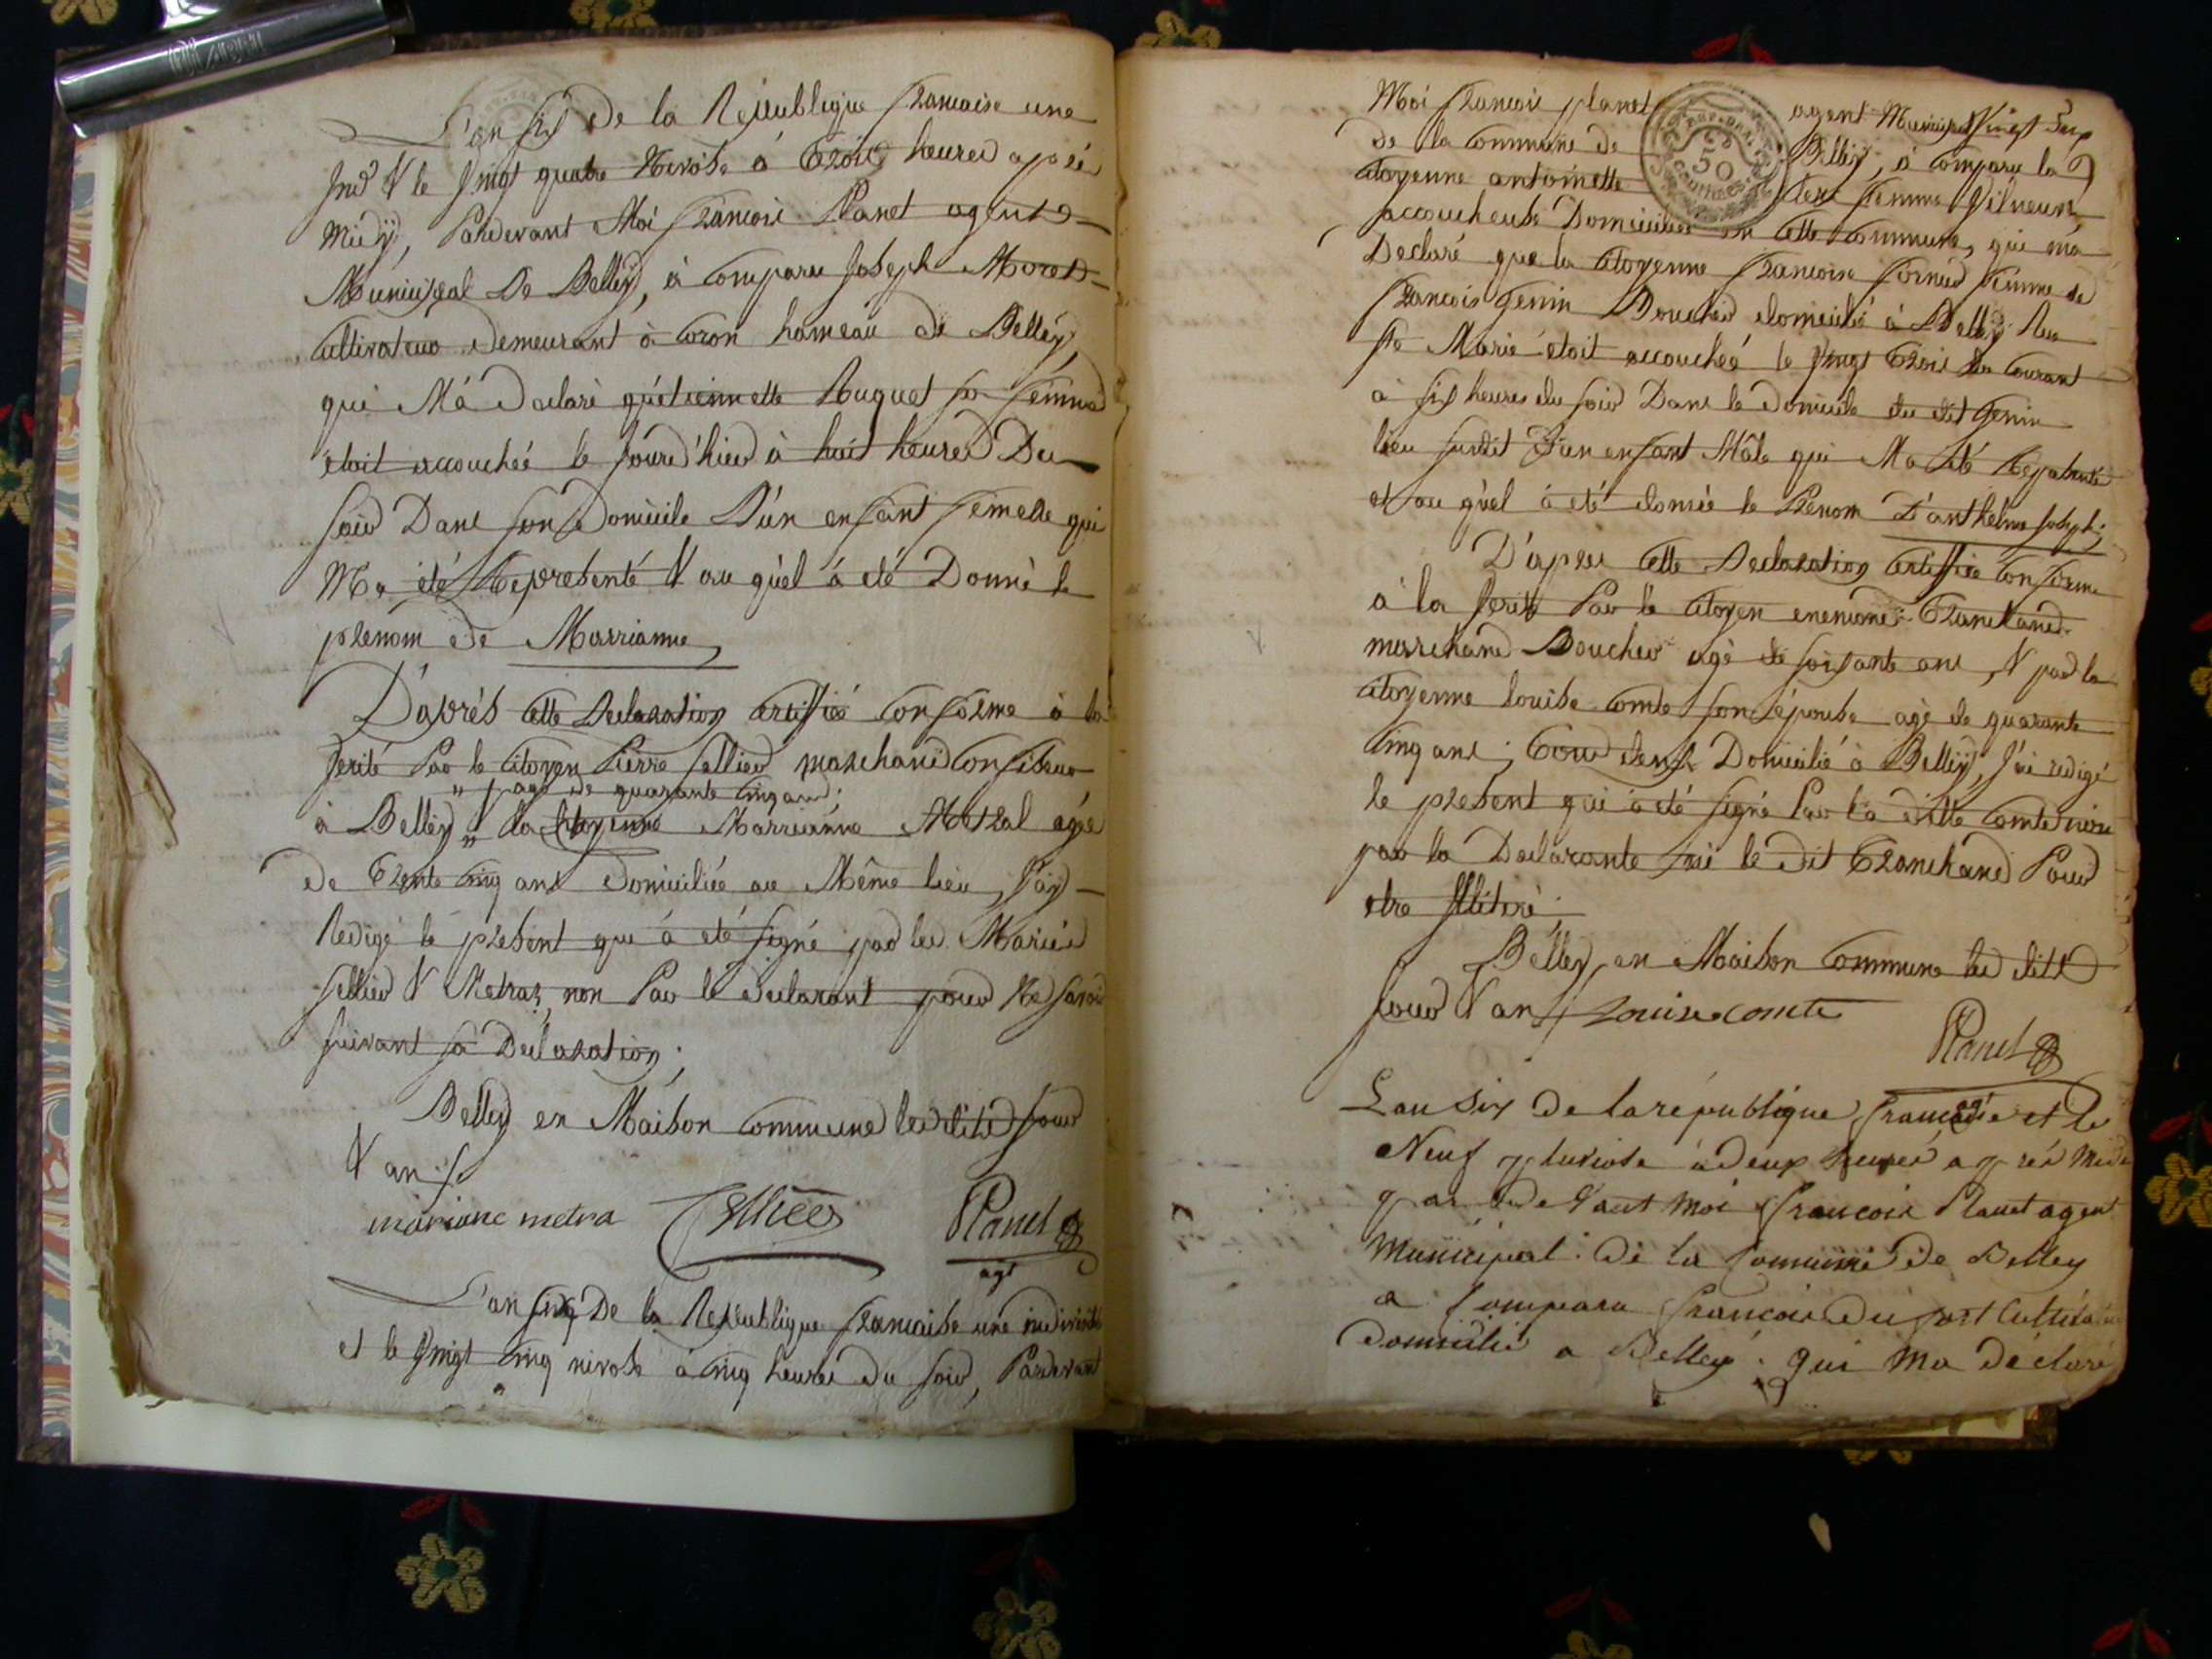 L'an six De la Republique francaise une
Ind^e & le vingt quatre Nivose à trois heures après
midÿ, Pardevant Moi françois Planet agent
Municipal De Belleÿ, à comparu Joseph Moret
cultivateur demeurant à coron hameau de Belleÿ
qui M'á Declaré qu'etiennette Huguet sa femme
étoit accouchéé le jourd'hier à huit heures Du
soir Dans son Domicile D'ún enfant femelle qui
M'a été Représenté & au quel á eté Donné le
prenom de Marrianne,
D'aprés cette Declaration certiffié conforme à la
verité Par le citoyen Pierre sellier marchand confiseur
" agé de quarante cinq ans;
à Belleÿ " la citoyenne Marrianne Metral agée
de trente cinq ans domiciliée au Même lieu, J'aÿ
Redigé le présent que á eté signé par les Mariés
sellier & Metraz, non Par le declarant pour Ne savoir
suivant sa Declaration;
Belleÿ en Maison commune les dits jour
& an
mariane metra Sellier Planet
agt
L'an six De la Republique francaise une indivisible
et le vingt cinq nivose à cinq heures du soir, Pardevant
Moi francois planet agent Municipal
de la commune de Belleÿ, à comparu la
citoyenne antoinette femme
accoucheuse Domiciliée en cette commune, qui m'a
Declaré que la citoyenne francoise femme de
francois Genin Boucher domicilié à Belleÿ Rue
Ste Marie étoit accouchéé le vingt trois du courant
à six heures du soir Dans le domicile du dit Genin
lieu susdit D'un enfant Mâle qui M'a été Représenté
et au quel à eté donnée le Prenom D'anthelme Joseph;
D'après cette Declaration certiffiée conforme
à la verité Par le citoyen tranchand
marchand Boucher agé de soixante ans, & par la
citoyenne louise comte son épouse agé de quarante
cinq ans; tous deux Domicilié à Belleÿ, J'ai redigé
le présent qui à eté signé Par la ditte comte non
par la Declarante ni le dit tranchand Pour
etre illiteré
Belleÿ, en Maison commune les dits
jour & an louise comte
Planet
Lan Six De la république francaise et le
Neuf pluviose à deux heures après Midi
par devant Moi francois Planet agent
Municipal De la Commune De Belley
a Comparu francois Duport Cultivateur
domicilié a Belley qui Ma déclaré